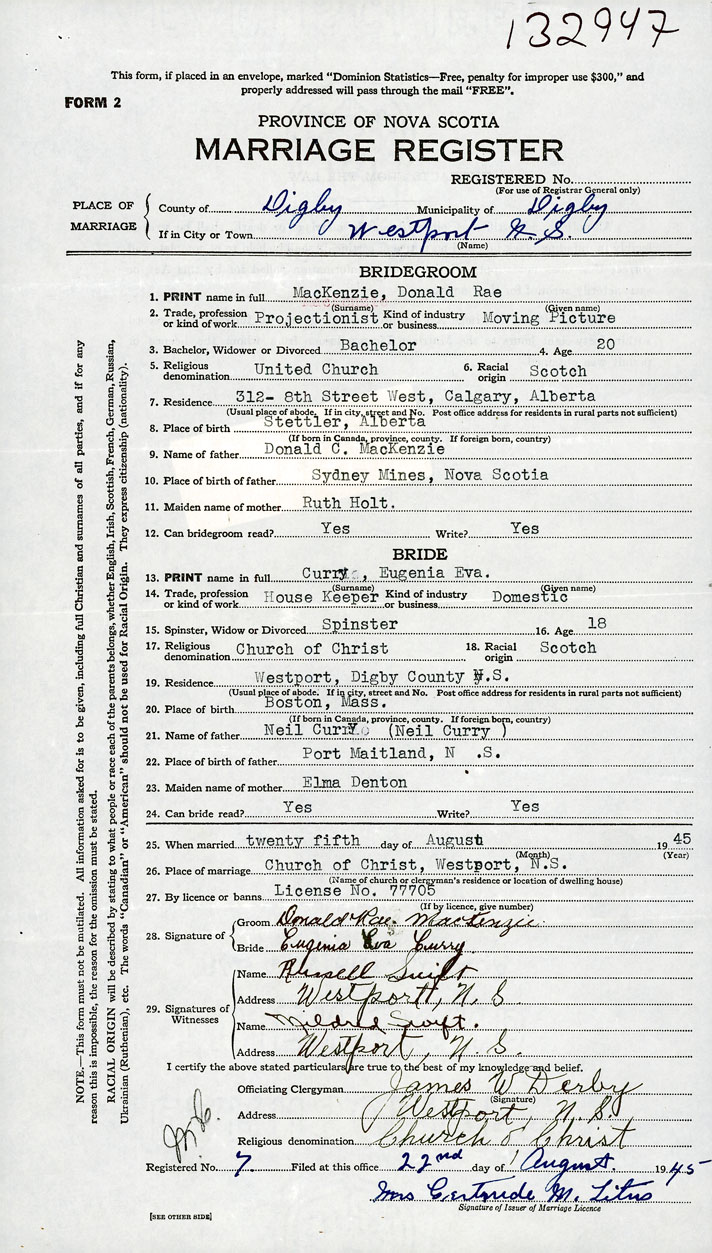 132947
This form, if placed in an envelope, marked “Dominion Statistics—Free, penalty for improper use $300,” and
properly addressed will pass through the mail “FREE”.
FORM 2
PROVINCE OF NOVA SCOTIA
MARRIAGE REGISTER
REGISTERED No.
(For use of Registrar General only)
PLACE OF MARRIAGE
County of Digby Municipality of Digby
If in City or Town Westport N.S.
(Name)
BRIDEGROOM
1. PRINT name in full MacKenzie, Donald Rae
(Surname) (Given name)
2. Trade, profession or kind of work Projectionist Kind of industry or business Moving Picture
3. Bachelor, Widower or Divorced Bachelor 4. Age 20
5. Religious denomination United Church 6. Racial origin Scotch
7. Residence 312- 8th Street West, Calgary, Alberta
(Usual place of abode. If in city, street and No. Post office address for residents in rural parts not sufficient)
8. Place of birth Stettler, Alberta
(If born in Canada, province, county. If foreign born, country)
9. Name of father Donald C. MacKenzie
10. Place of birth of father Sydney Mines, Nova Scotia
11. Maiden name of mother Ruth Holt.
12. Can bridegroom read? Yes Write? Yes
BRIDE
13. PRINT name in full Curry, Eugenia Eva.
(Surname) (Given name)
14. Trade, profession or kind of work House Keeper Kind of industry or business Domestic
15. Spinster, Widow or Divorced Spinster 16. Age 18
17. Religious denomination Church of Christ 18. Racial origin Scotch
19. Residence Westport, Digby County N.S.
(Usual place of abode. If in city, street and No. Post office address for residents in rural parts not sufficient)
20. Place of birth Boston, Mass.
(If born in Canada, province, county. If foreign born, country)
21. Name of father Neil Curry (Neil Curry )
22. Place of birth of father Port Maitland, N .S.
23. Maiden name of mother Elma Denton
24. Can bride read? Yes Write? Yes
25. When married twenty fifth day of August 1945
(Month) (Year)
26. Place of marriage Church of Christ, Westport, N.S.
(Name of church or clergyman's residence or location of dwelling house)
27. By licence or banns License No. 77705
(If by licence, give number)
28. Signature of
Groom Donald Rae. MacKenzie.
Bride Eugenia Eva Curry
29. Signatures of Witnesses
Name Russell Swift
Address Westport, N.S
Name Mildred Swift.
Address Westport, N.S.
I certify the above stated particulars are true to the best of my knowledge and belief.
Officiating Clergyman James W Derby
(Signature)
Address Westport, N.S.
Religious denomination Church of Christ
Registered No. 7 Filed at this office 22nd day of August 1945
Mrs Gertrude M. Titus
Signature of Issuer of Marriage Licence
[SEE OTHER SIDE]
NOTE.—This form must not be mutilated. All information asked for is to be given, including full Christian and surnames of all parties, and if for any
reason this is impossible, the reason for the omission must be stated.
RACIAL ORIGIN will be described by stating to what people or race each of the parents belongs, whether English, Irish, Scottish, French, German, Russian,
Ukrainian (Ruthenian), etc. The words “Canadian” or “American” should not be used for Racial Origin. They express citizenship (nationality).